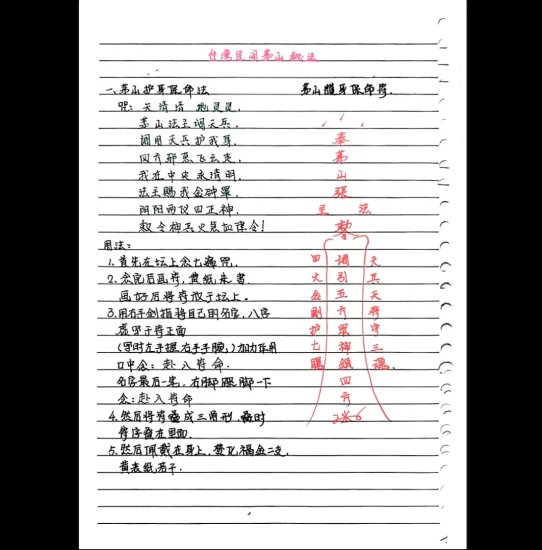 台湾民间茅山秘法
一、茅山护身保命法
茅山护身保命符.
咒: 天清清 地灵灵,
茅山法主调天兵,
调用天兵护我身,
四方邪恶飞云走,
我在中央永清明,
法主赐我金钟罩,
阴阳两仪四正神,
敕令神兵火急如律令!
用法:
1.首先在坛上念七遍咒,
2、念完后画符,黄纸,朱书.
画好后将符放于坛上。
3.用右手剑指将自己的名字,八字
虚写于符正面
(写时左手握右手手腕,)加力作用
口中念: 赴入符命.
名字最后一笔,右脚跟脚一下
念:赴入符命
4.然后将符叠成三角形,叠时
符字叠在里面.
5.然后佩戴在身上,焚化福金二支.
黄表纸若干.
奉
茅
山
張
主 法
四 調 天
大 引 兵
金 五 天
剛 方 将
护 眾 守
七 神 三
魄 鎮 魂
四
方